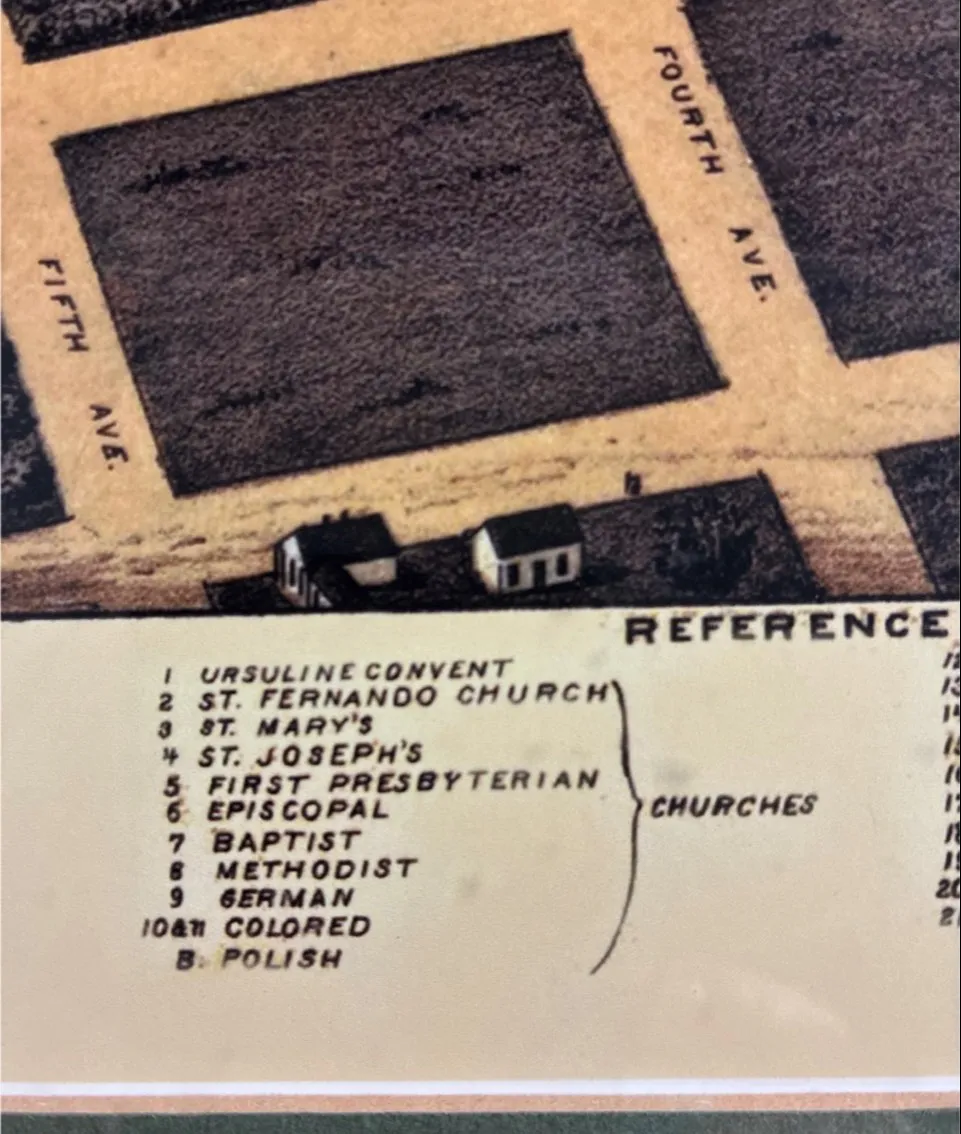 FOURTH AVE.
FIFTH AVE.
REFERENCE
1 URSULINE CONVENT
2 ST. FERNANDO CHURCH
3 ST. MARY'S
4 ST. JOSEPH'S
5 FIRST PRESBYTERIAN
6 EPISCOPAL
7 BAPTIST
8 METHODIST
9 GERMAN
10&11 COLORED
B. POLISH
CHURCHES
12
13
14
15
16
17
18
19
20
21